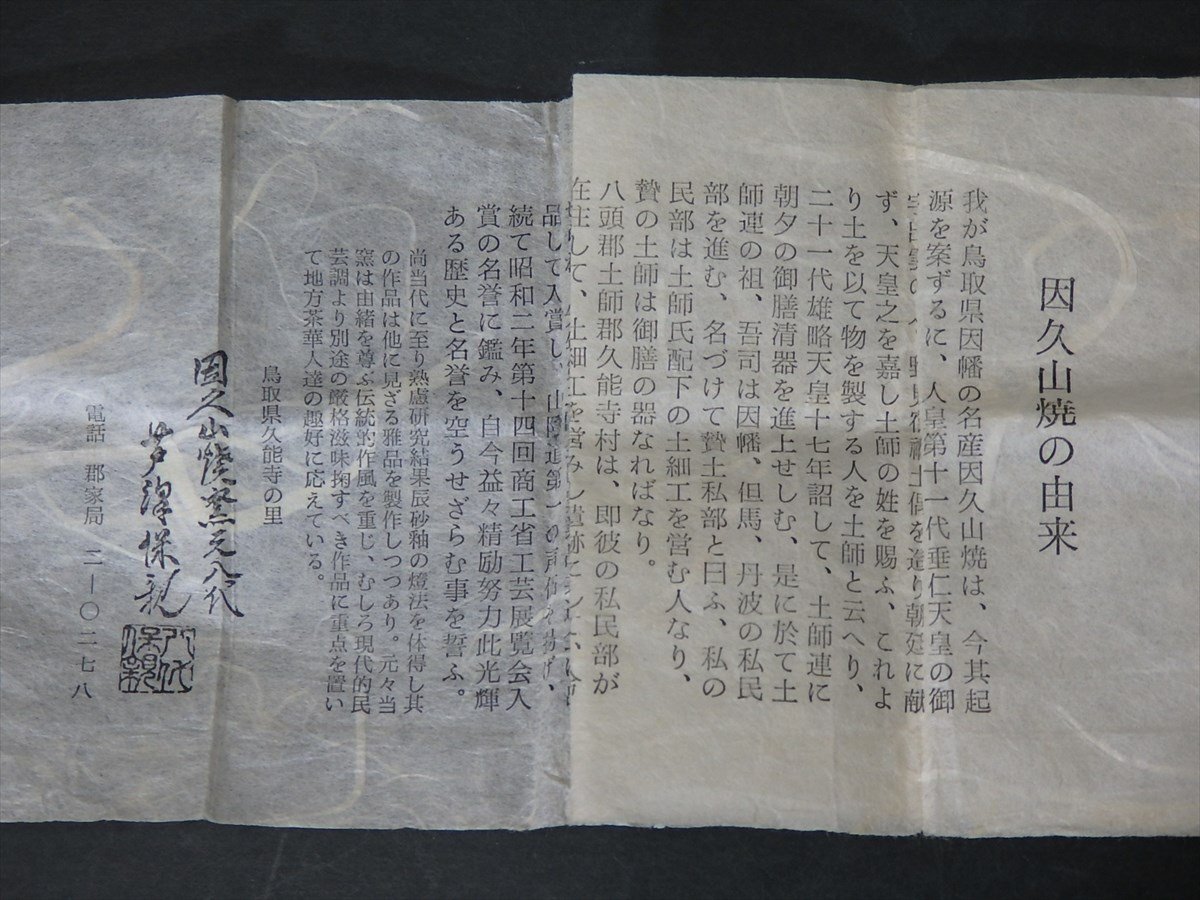 因久山焼の由来
我が鳥取県因幡の名産因久山焼は、今其起
源を案ずるに、人皇第十一代垂仁天皇の御
土偶を造り朝廷に献
ず、天皇之を嘉し土師の姓を賜ふ、これよ
り土を以て物を製する人を土師と云へり、
二十一代雄略天皇十七年詔して、土師連に
朝夕の御膳清器を進上せしむ、是に於て土
師連の祖、吾司は因幡、但馬、丹波の私民
部を進む、名づけて贄土私部と曰ふ、私の
民部は土師氏配下の土細工を営む人なり、
贄の土師は御膳の器なればなり。
八頭郡土師郡久能寺村は、即彼の私民部が
在住して、土細工を営みし遺跡に
品して入賞し、山陰道第一の声価を
続て昭和二年第十四回商工省工芸展覧会入
賞の名誉に鑑み、自今益々精励努力此光輝
ある歴史と名誉を空うせざらむ事を誓ふ。
尚当代に至り熟慮研究結果辰砂釉の燈法を体得し其
の作品は他に見ざる雅品を製作しつつあり。元々当
窯は由緒を尊ぶ伝統的作風を重じ、むしろ現代的民
芸調より別途の厳格滋味掬すべき作品に重点を置い
て地方茶華人達の趣好に応えている。
鳥取県久能寺の里
因久山焼窯元八代
芦澤保親
八代保親
電話 郡家局 二―〇二七八